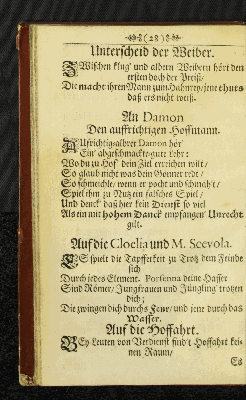 (28)
Unterscheid der Weiber.
ZWischen klug' und albern Weibern hört den
ersten doch der Preiß/
Die macht ihren Mann zum Hahnrey/ jene thuts
daß ers nicht weiß.
An Damon
Den auffrichtigen Hoffmann.
AUfrichtigsalber Damon hör'
Ein' abgeschmackte gute Lehr:
Wo du zu Hof' dein Ziel erreichen wilt/
So glaub nicht was dein Gönner redt/
So schmeichle/ wenn er pocht und schmäht/
Spiel ihm zu Nutz ein falsches Spiel/
Und denck' daß hier kein Dienst so viel
Als ein mit hohem Danck empfangen' Unrecht
gilt.
Auf die Cloelia und M. Scevola.
ES spielt die Tapfferkeit zu Trotz dem Feinde
sich
Durch jedes Element. Porsenna deine Hasser
Sind Römer/ Jungfrauen und Jüngling' trotzen
dich;
Die zwingen dich durchs Feur/ und jene durch das
Wasser.
Auf die Hoffahrt.
BEy Leuten von Verdienst find't Hoffahrt kei-
nen Raum/
Es